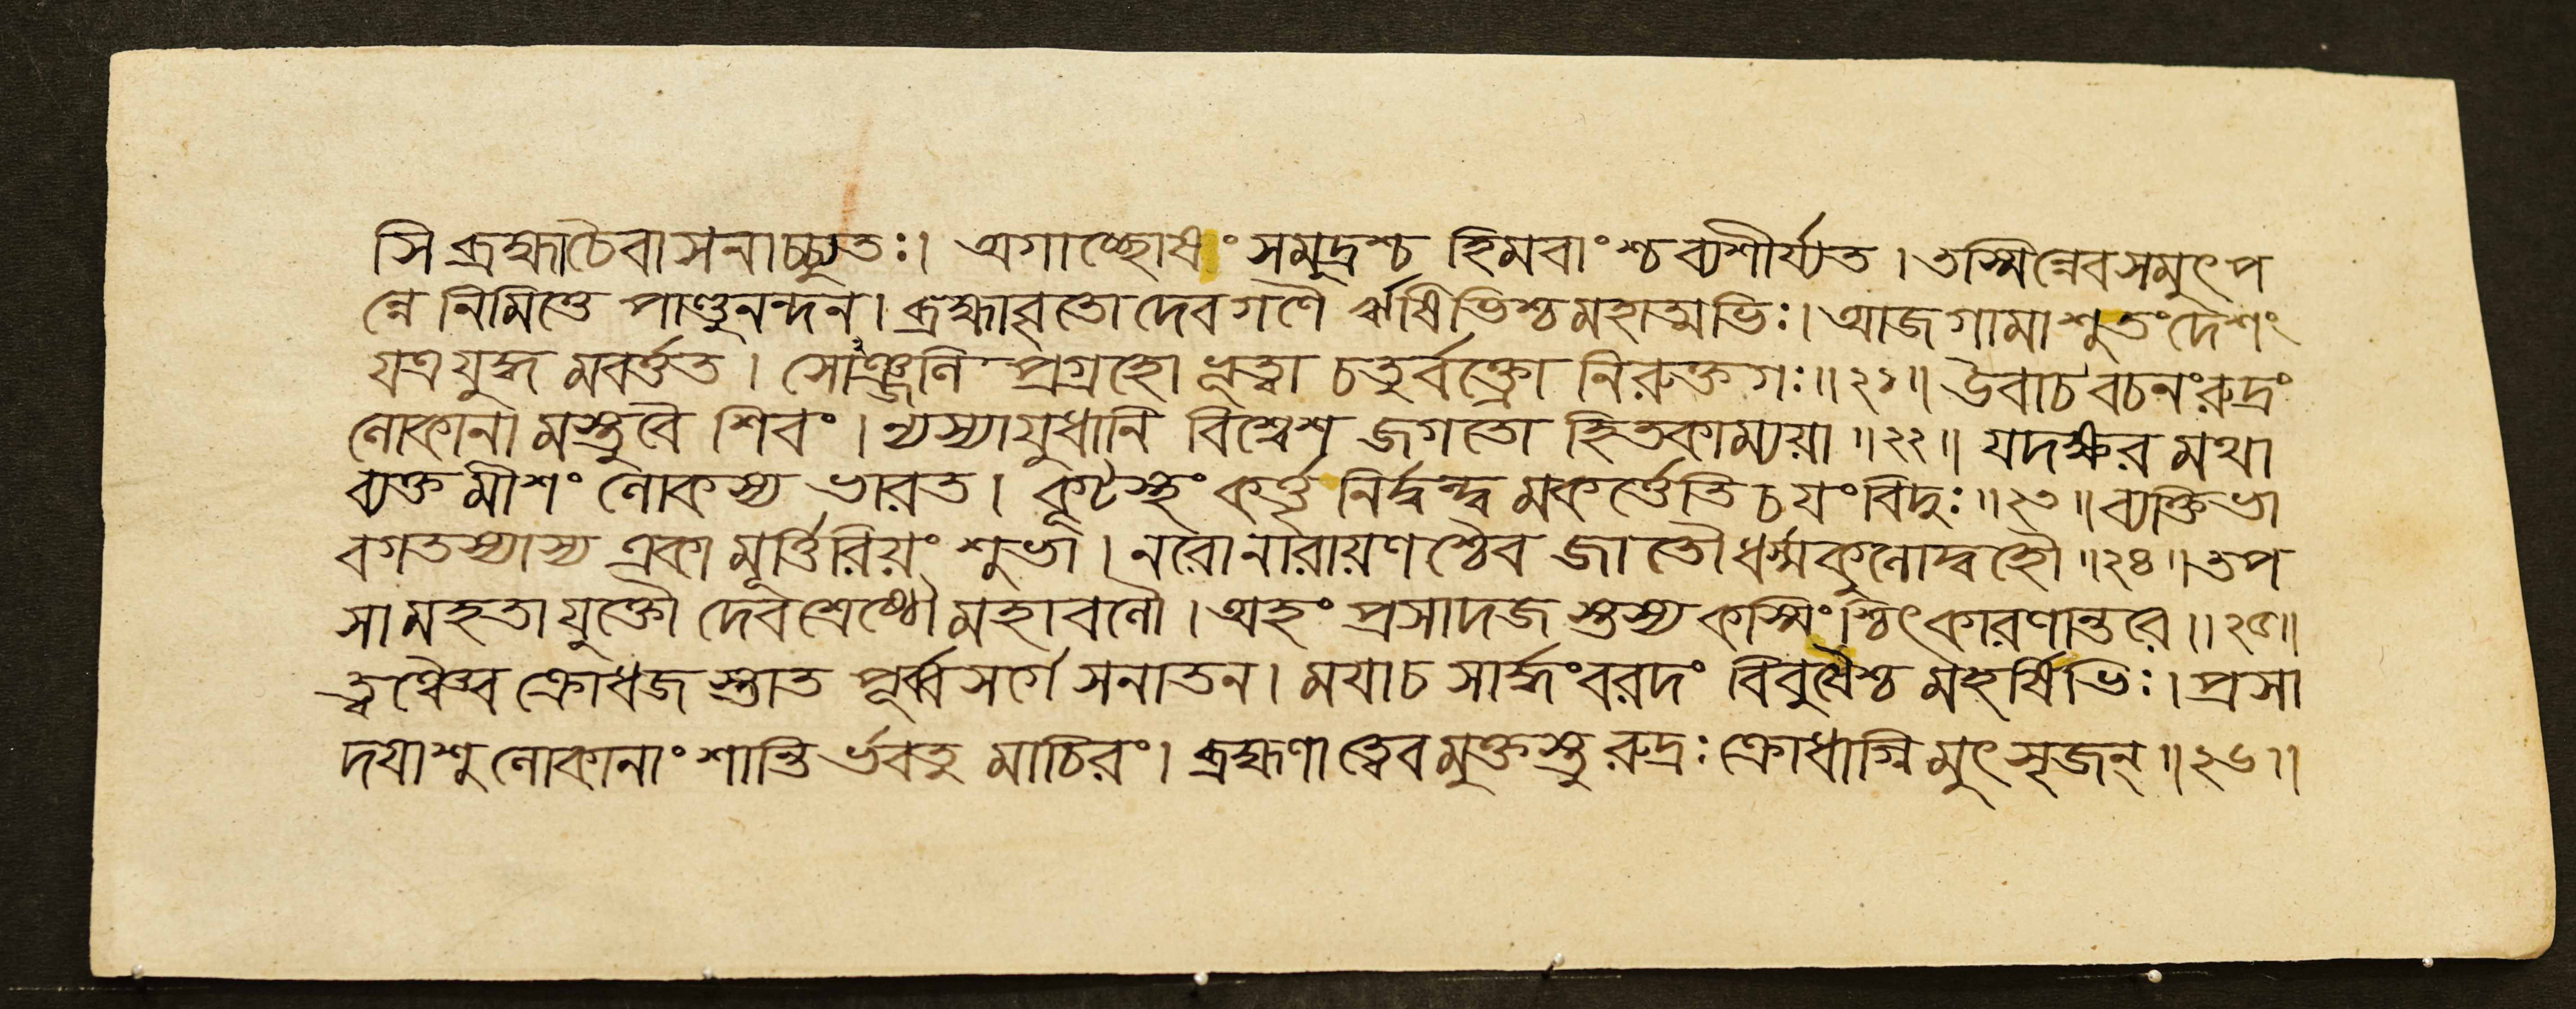 সি ব্রহ্মা চৈবাসনাচ্চ্যুতঃ। অগাচ্ছোষং সমুদ্রশ্চ হিমবাংশ্চ ব্যশীর্য্যত। তস্মিন্নেব সমুৎপ
ন্নে নিমিত্তে পাণ্ডুনন্দন। ব্রহ্মা বৃতো দেবগণৈ র্ঋষিভিশ্চ মহাত্মভিঃ। আজগামাশু তং দেশং
যত্র যুদ্ধ মবর্ত্তত। সোঞ্জলি প্রগ্রহো ধৃত্বা চতুর্বক্ত্রো নিরুক্তগঃ॥২১॥ উবাচ বচনং রুদ্রং
লোকানা মস্তু বৈ শিবং। ন্যস্যায়ুধানি বিশ্বেশ জগতো হিতকাম্যয়া॥২২॥ যদক্ষর মথা
ব্যক্ত মীশং লোকস্য ভারত। কূটস্থং কর্ত্তৃ নির্দ্বন্দ্ব মকর্ত্তেতি চ যং বিদুঃ॥২৩॥ ব্যক্তিভা
বগতস্যাস্য একা মূর্ত্তিরিয়ং শুভা। নরো নারায়ণশ্চৈব জাতৌ ধর্ম্মকুলোদ্বহৌ॥২৪॥ তপ
সা মহতা যুক্তৌ দেবশ্রেষ্ঠৌ মহাবলৌ। অহং প্রসাদজ স্তস্য কস্মিংশ্চিৎ কারণান্তরে॥২৫॥
ত্বঞ্চৈব ক্রোধজ স্তাত পূর্ব্ব সর্গে সনাতন। ময়া চ সার্দ্ধং বরদং বিবুধৈশ্চ মহর্ষিভিঃ। প্রসা
দয়াশু লোকানাং শান্তি র্ভবতু মাচিরং। ব্রহ্মণা ত্বেবমুক্তস্তু রুদ্রঃ ক্রোধাগ্নি মুৎসৃজন্॥২৬॥